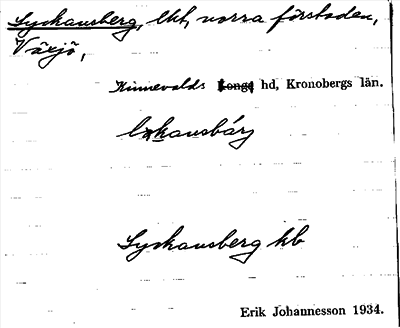 Lyckansberg, lht, norra förstaden,
Växjö,
Kinnevalds Konga hd, Kronobergs län.
Lyckansberg hb
Erik Johannesson 1934.